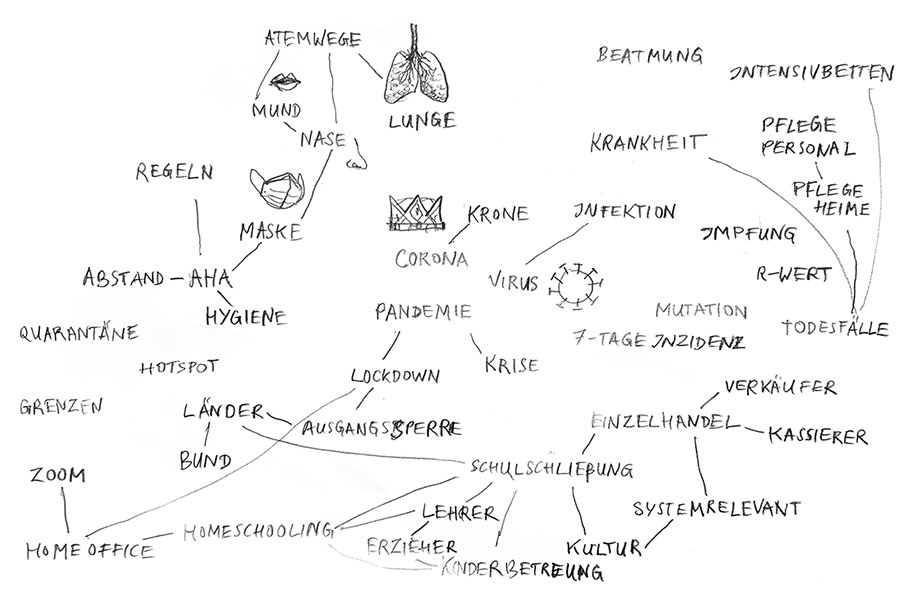 ATEMWEGE
BEATMUNG
INTENSIVBETTEN
MUND
LUNGE
NASE
PFLEGE
PERSONAL
KRANKHEIT
REGELN
PFLEGE
HEIME
KRONE
INFEKTION
MASKE
IMPFUNG
CORONA
ABSTAND – AHA
R-WERT
VIRUS
HYGIENE
PANDEMIE
MUTATION
QUARANTÄNE
TODESFÄLLE
7-TAGE INZIDENZ
HOTSPOT
KRISE
LOCKDOWN
VERKÄUFER
GRENZEN
LÄNDER
AUSGANGSSPERRE
EINZELHANDEL
KASSIERER
BUND
SCHULSCHLIEßUNG
ZOOM
LEHRER
SYSTEMRELEVANT
HOMESCHOOLING
HOME OFFICE
ERZIEHER
KULTUR
KINDERBETREUUNG